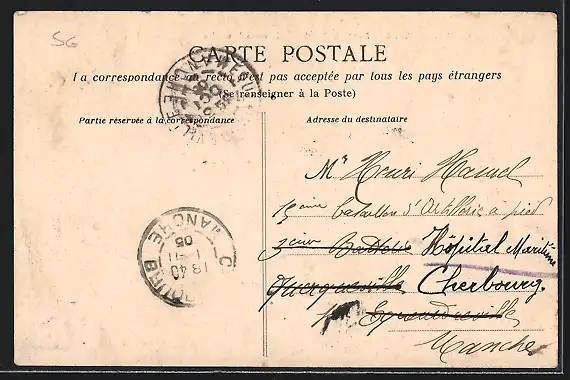 56
CARTE POSTALE
La correspondance au recto n'est pas acceptée par tous les pays étrangers
(Se renseigner à la Poste)
Partie réservée à la correspondance
Adresse du destinataire
Mr Henri Hamel
bataillon d'Artillerie à pied
3eme Batterie Hôpital Maritime
Querqueville Cherbourg.
Equeurdreville
Manche
MANCHE
18 40
05